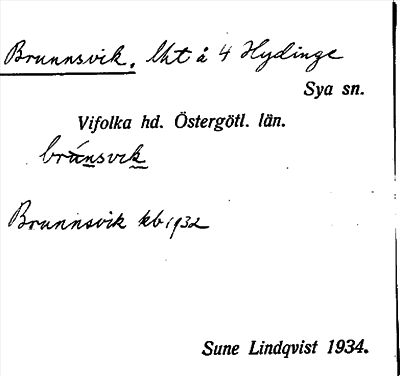 Brunnsvik, lht å 4 Hydinge
Sya sn.
Vifolka hd. Östergötl. län.
brúnsvik
Brunnsvik kb 1932
Sune Lindqvist 1934.